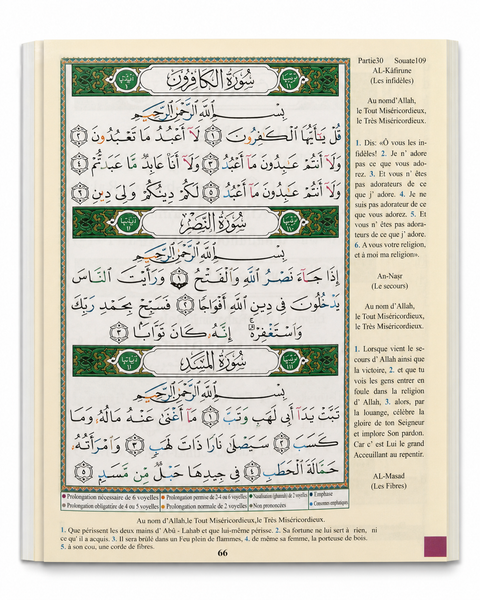 سُورَةُ الْكَافِرُونَ
بِسْمِ اللَّهِ الرَّحْمَٰنِ الرَّحِيمِ
قُلْ يَٰٓأَيُّهَا الْكَٰفِرُونَ ١ لَآ أَعْبُدُ مَا تَعْبُدُونَ ٢
وَلَآ أَنتُمْ عَٰبِدُونَ مَآ أَعْبُدُ ٣ وَلَآ أَنَا۠ عَابِدٌ مَّا عَبَدتُّمْ ٤
وَلَآ أَنتُمْ عَٰبِدُونَ مَآ أَعْبُدُ ٥ لَكُمْ دِينُكُمْ وَلِىَ دِينِ ٦
سُورَةُ النَّصْرِ
بِسْمِ اللَّهِ الرَّحْمَٰنِ الرَّحِيمِ
إِذَا جَآءَ نَصْرُ اللَّهِ وَالْفَتْحُ ١ وَرَأَيْتَ النَّاسَ
يَدْخُلُونَ فِى دِينِ اللَّهِ أَفْوَاجًا ٢ فَسَبِّحْ بِحَمْدِ رَبِّكَ
وَاسْتَغْفِرْهُ إِنَّهُۥ كَانَ تَوَّابًۢا ٣
سُورَةُ الْمَسَد
بِسْمِ اللَّهِ الرَّحْمَٰنِ الرَّحِيمِ
تَبَّتْ يَدَآ أَبِى لَهَبٍ وَتَبَّ ١ مَآ أَغْنَىٰ عَنْهُ مَالُهُۥ وَمَا
كَسَبَ ٢ سَيَصْلَىٰ نَارًا ذَاتَ لَهَبٍ ٣ وَامْرَأَتُهُۥ
حَمَّالَةَ الْحَطَبِ ٤ فِى جِيدِهَا حَبْلٌ مِّن مَّسَدٍۭ ٥
Prolongation nécessaire de 6 voyelles
Prolongation permise de 2-4 ou 6 voyelles
Nasalisation (ghunnah) de 2 voyelles
Emphase
Prolongation obligatoire de 4 ou 5 voyelles
Prolongation normale de 2 voyelles
Non prononcées
Consonnes emphatiques
Partie30 Souate109
AL-Kâfirune
(Les infidèles)
Au nomd'Allah,
le Tout Miséricordieux,
le Très Miséricordieux.
1. Dis: «Ô vous les in-
fidèles! 2. Je n' adore
pas ce que vous ado-
rez. 3. Et vous n' êtes
pas adorateurs de ce
que j' adore. 4. Je ne
suis pas adorateur de ce
que vous adorez. 5. Et
vous n' êtes pas adora-
teurs de ce que j' adore.
6. A vous votre religion,
et à moi ma religion».
An-Naṣr
(Le secours)
Au nom d'Allah,
le Tout Miséricordieux,
le Très Miséricordieux.
1. Lorsque vient le se-
cours d' Allah ainsi que
la victoire, 2. et que tu
vois les gens entrer en
foule dans la religion
d' Allah, 3. alors, par
la louange, célèbre la
gloire de ton Seigneur
et implore Son pardon.
Car c' est Lui le grand
Acceuillant au repentir.
AL-Masad
(Les Fibres)
Au nom d'Allah,le Tout Miséricordieux,le Très Miséricordieux.
1. Que périssent les deux mains d' Abû - Lahab et que lui-même périsse. 2. Sa fortune ne lui sert à rien, ni
ce qu' il a acquis. 3. Il sera brûlé dans un Feu plein de flammes, 4. de même sa femme, la porteuse de bois.
5. à son cou, une corde de fibres.
66